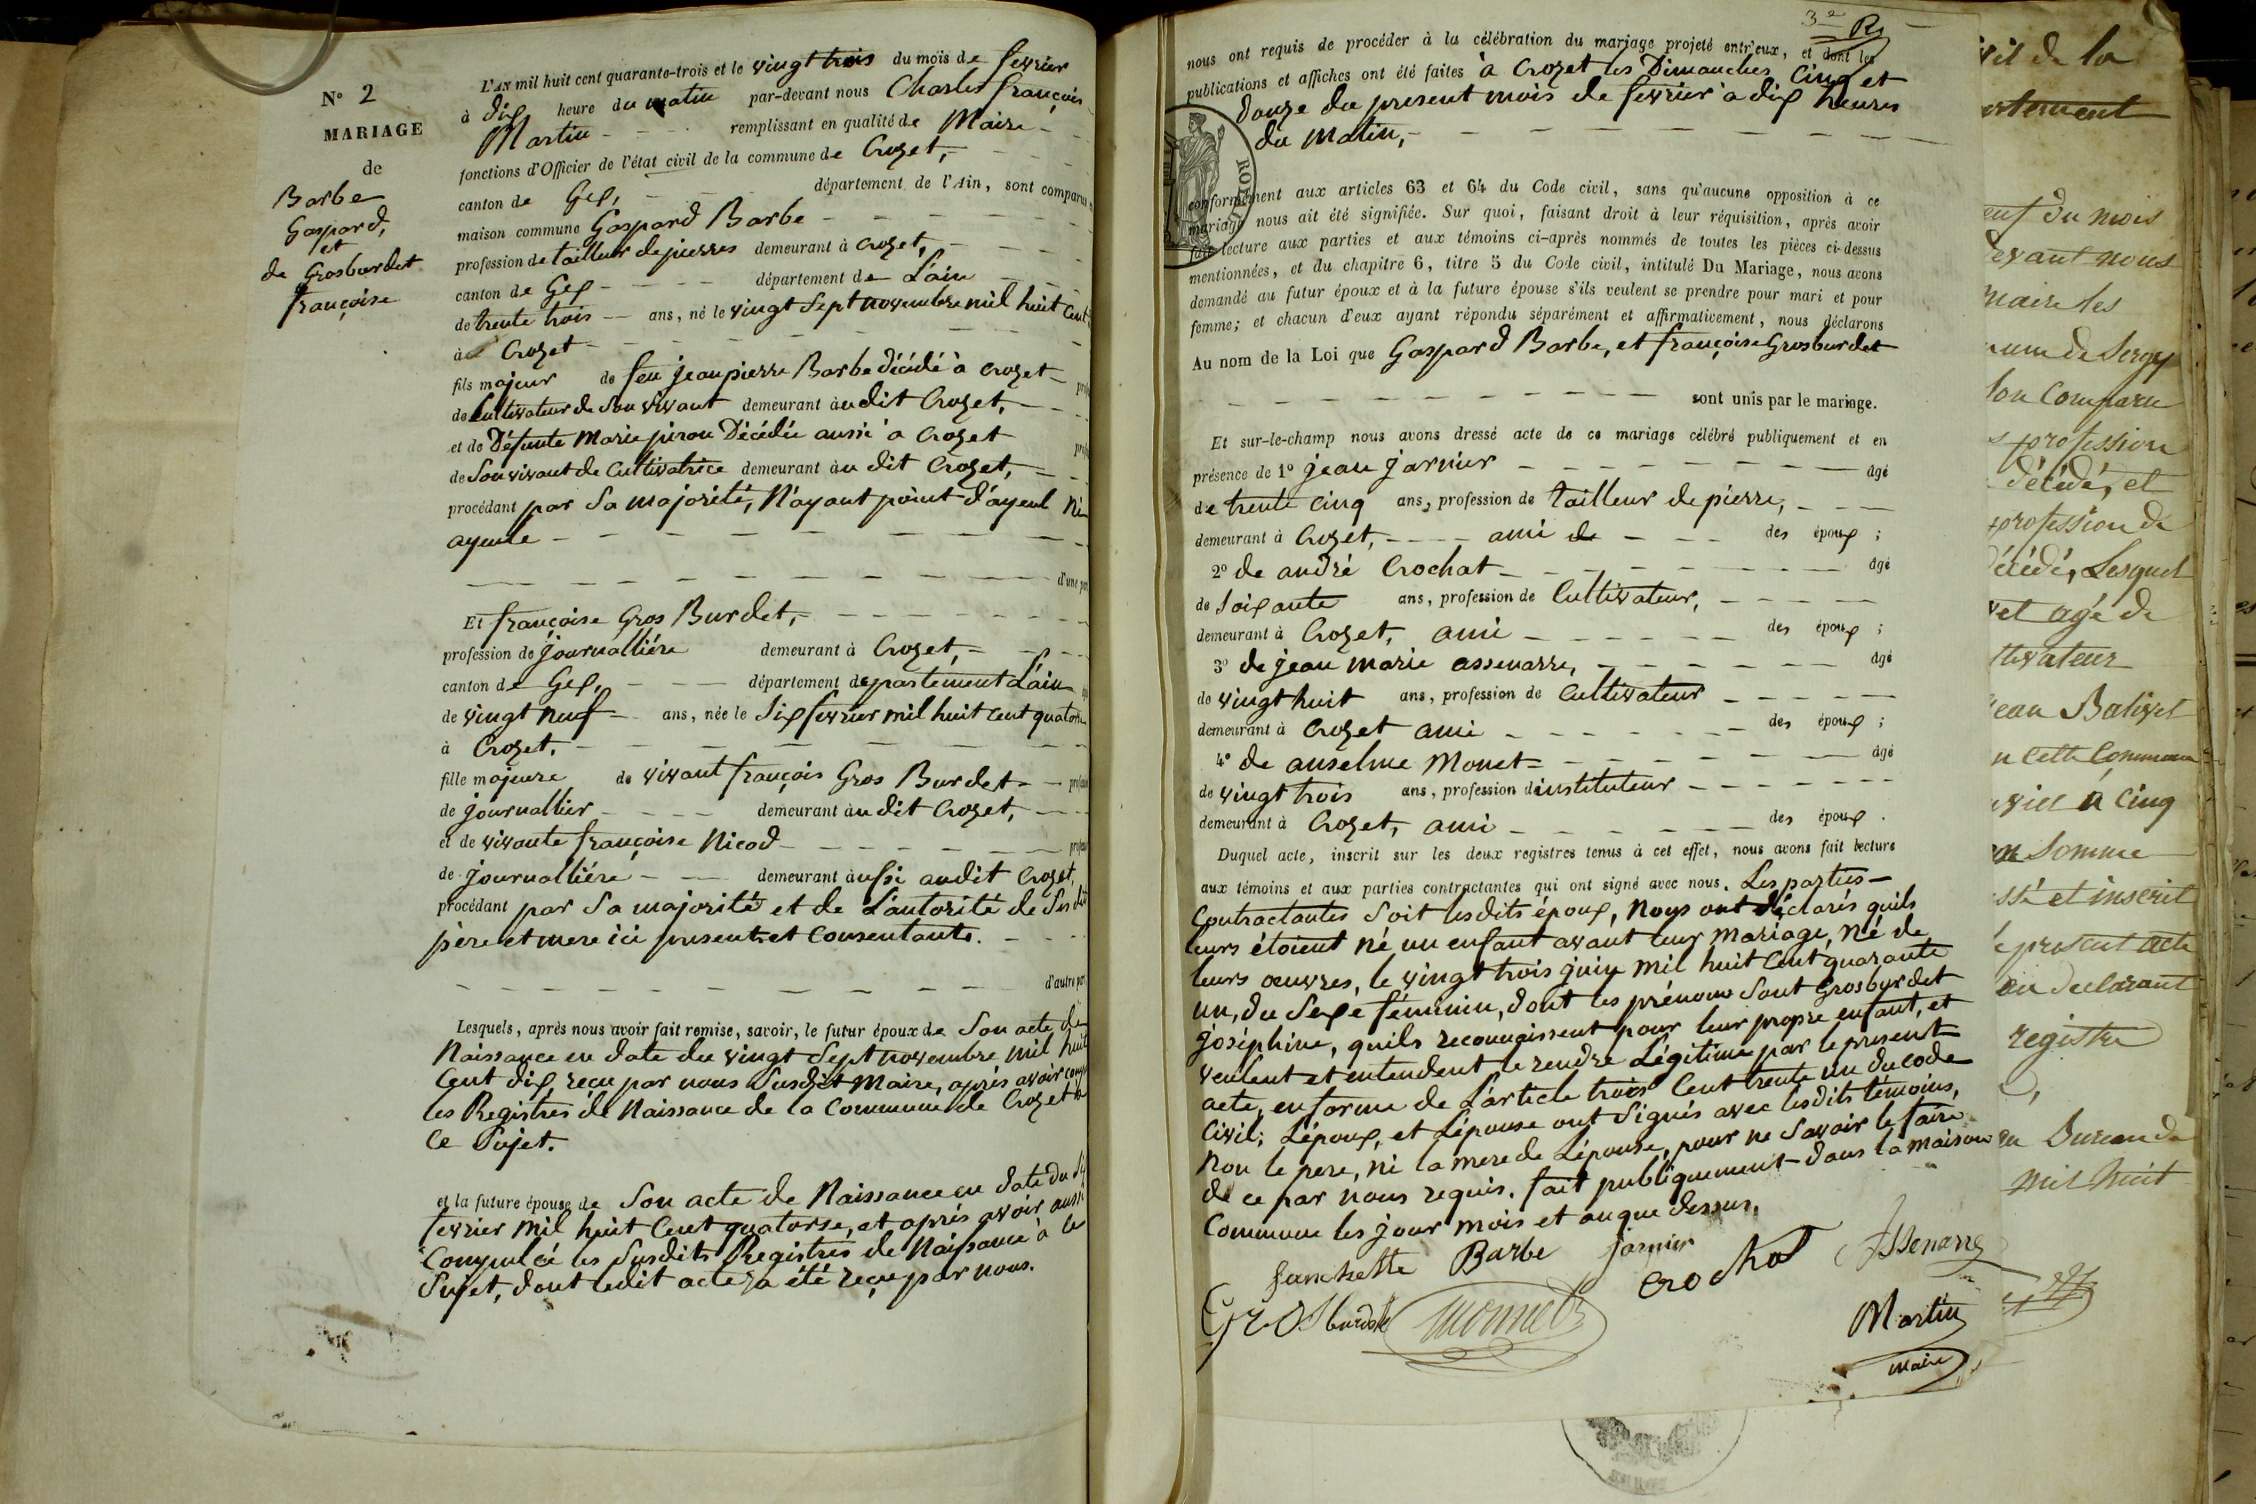 N° 2
MARIAGE
de
Barbe
Gaspard,
et
de Grosburdet
françoise
L'AN mil huit cent quarante-trois et le vingt trois du mois de fevrier
à dix heure du matin par-devant nous Charles françois
Martin remplissant en qualité de Maire
fonctions d'Officier de l'état civil de la commune de Crozet,
canton de Gex, département de l'Ain, sont comparus
maison commune Gaspard Barbe
profession de tailleur de pierres demeurant à Crozet,
canton de Gex département de L'ain
de trente trois ans, né le vingt Sept novembre mil huit Cent
à Crozet
fils majeur de feu jean pierre Barbe décédé à Crozet
de Cultivateur de Son vivant demeurant audit Crozet,
et de Défunte Marie piron Décédée aussi à Crozet
de Son vivant de Cultivatrice demeurant au dit Crozet,
procédant par Sa majorité, N'ayant point d'ayeul Ni
ayeule
d'une par
Et françoise Gros Burdet,
profession de journallière demeurant à Crozet,
canton de Gex, département departement L'ain
de vingt neuf ans, née le Six fevrier mil huit Cent quatorze
à Crozet,
fille majeure de vivant françois Gros Burdet
de journallier demeurant audit Crozet,
et de vivante françoise Nicod
de journallière demeurant aussi audit Crozet,
procédant par Sa majorité et de L'autorité de Ses dit
père et mere ici present et Consentants.
d'autre par
Lesquels, après nous avoir fait remise, savoir, le futur époux de Son acte de
Naissance en date du vingt Sept novembre mil huit
Cent dix, reçu par nous Susdit Maire, après avoir comp
les Registres de Naissance de la Commune de Crozet à
Ce Sujet.
et la future épouse de Son acte de Naissance en date du Six
fevrier mil huit Cent quatorse, et après avoir aussi
Compulcé les Susdits Registres de Naissance à Ce
Sujet, dont ledit acte a été reçu par nous.
3e Rs
nous ont requis de procéder à la célébration du mariage projeté entr'eux, et dont les
publications et affiches ont été faites à Crozet les Dimanches, Cinq et
Douze du present mois de fevrier à dix heures
du matin,
conformément aux articles 63 et 64 du Code civil, sans qu'aucune opposition à ce
mariage nous ait été signifiée. Sur quoi, faisant droit à leur réquisition, après avoir
fait lecture aux parties et aux témoins ci-après nommés de toutes les pièces ci-dessus
mentionnées, et du chapitre 6, titre 5 du Code civil, intitulé Du Mariage, nous avons
demandé au futur époux et à la future épouse s'ils veulent se prendre pour mari et pour
femme; et chacun d'eux ayant répondu séparément et affirmativement, nous déclarons
Au nom de la Loi que Gaspard Barbe, et françoise Grosburdet
sont unis par le mariage.
Et sur-le-champ nous avons dressé acte de ce mariage célébré publiquement et en
présence de 1° jean jarnier âgé
de trente cinq ans, profession de tailleur de pierre,
demeurant à Crozet, ami de des époux ;
2° de andré Crochat âgé
de Soixante ans, profession de Cultivateur,
demeurant à Crozet, ami des époux ;
3° de jean marie assenarre, âgé
de vingt huit ans, profession de Cultivateur
demeurant à Crozet ami des époux ;
4° de anselme Monet âgé
de vingt trois ans, profession d'instituteur
demeurant à Crozet, ami des époux .
Duquel acte, inscrit sur les deux registres tenus à cet effet, nous avons fait lecture
aux témoins et aux parties contractantes qui ont signé avec nous. Les parties
Contractantes Soit lesdits époux, Nous ont déclarés quils
leurs étoient né un enfant avant leur mariage, Né de
leurs œuvres, le vingt trois juin mil huit Cent quarante
un, du Sexe féminin, dont les prénoms Sont Grosburdet
joséphine, quils reconnaissent pour leur propre enfant, et
veulent et entendent le rendre Légitime par le present
acte, en forme de L'article trois Cent trente un du code
Civil; L'époux, et L'épouse ont Signés avec lesdits témoins,
Non le pere, ni la mere de L'épouse, pour ne Savoir le faire
de ce par nous requis. fait publiquement dans la maison
Commune les jour mois et an que dessus.
fanchette Barbe jarnier
Crochat Assenarre
Grosburdet Monnet
Martin
Maire
ivil de la
du mois
devant nous
Maire les
de Sergy
Comparu
profession
décédé, et
profession de
décédé, Lesquel
agé de
jean Balivet
n cette Commune
à Cinq
Somme
et inscrit
present acte
declarant
registre
Bureau de
mil huit